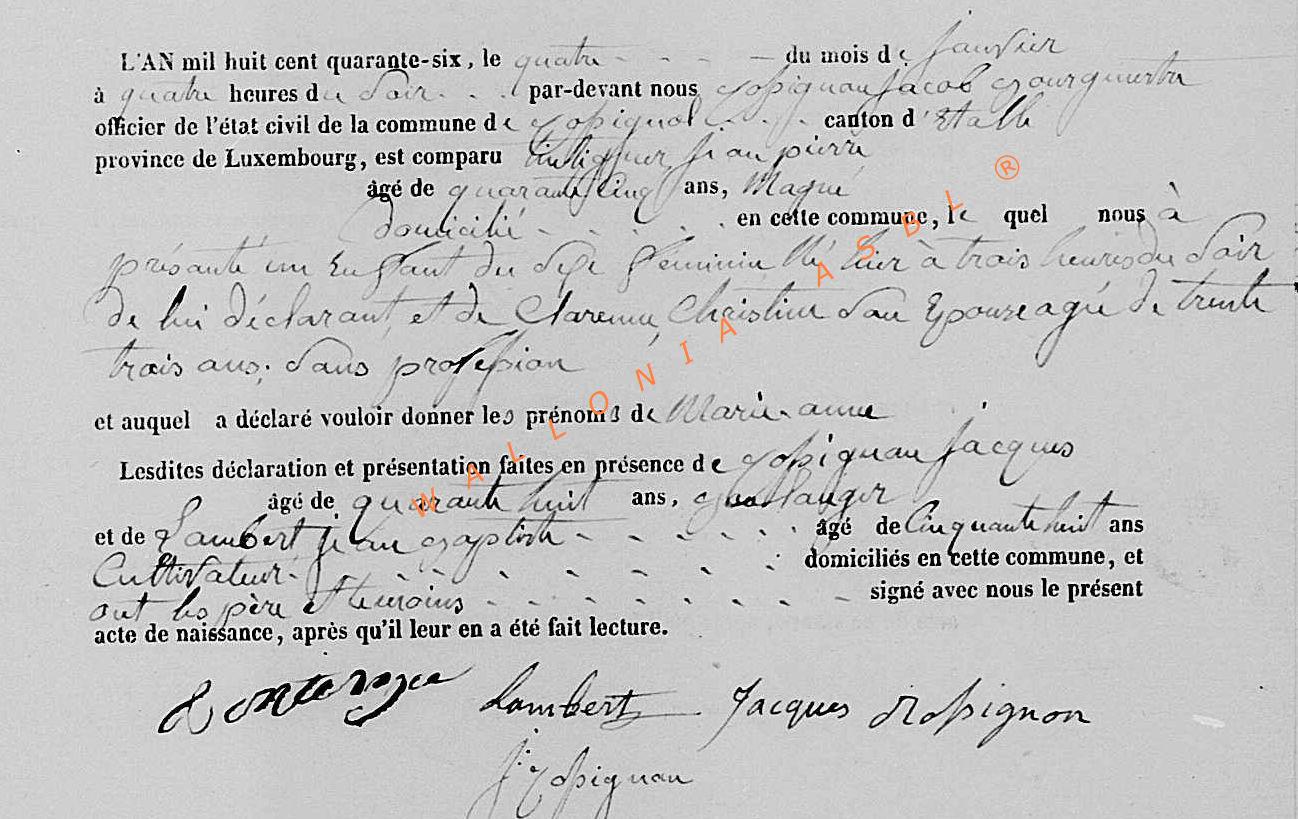 L'AN mil huit cent quarante-six, le quatre du mois de janvier
à quatre heures du Soir par-devant nous Rossignon Jacob Bourguemtre
officier de l'état civil de la commune de Rossignol canton d'Etalle
province de Luxembourg, est comparu jean pierre
âgé de quarante cinq ans, Maçon
domicilié en cette commune, le quel nous à
présanté un Enfant du Sexe féminin, Né hier à trois heures du Soir
de lui déclarant, et de Claremne, Christine Son Epouse agée de trente
trois ans, Sans profession
et auquel a déclaré vouloir donner les prénoms de Marie-anne
Lesdites déclaration et présentation faites en présence de Rossignon Jacques
âgé de quarante huit ans, Boulanger
et de Lambert Jean Baptiste âgé de Cinquante huit ans
Cultivateur domiciliés en cette commune, et
ont les père et temoins signé avec nous le présent
acte de naissance, après qu'il leur en a été fait lecture.
Lambert Jacques Rossignon
J Rossignon
WALLONIA ASBL ®